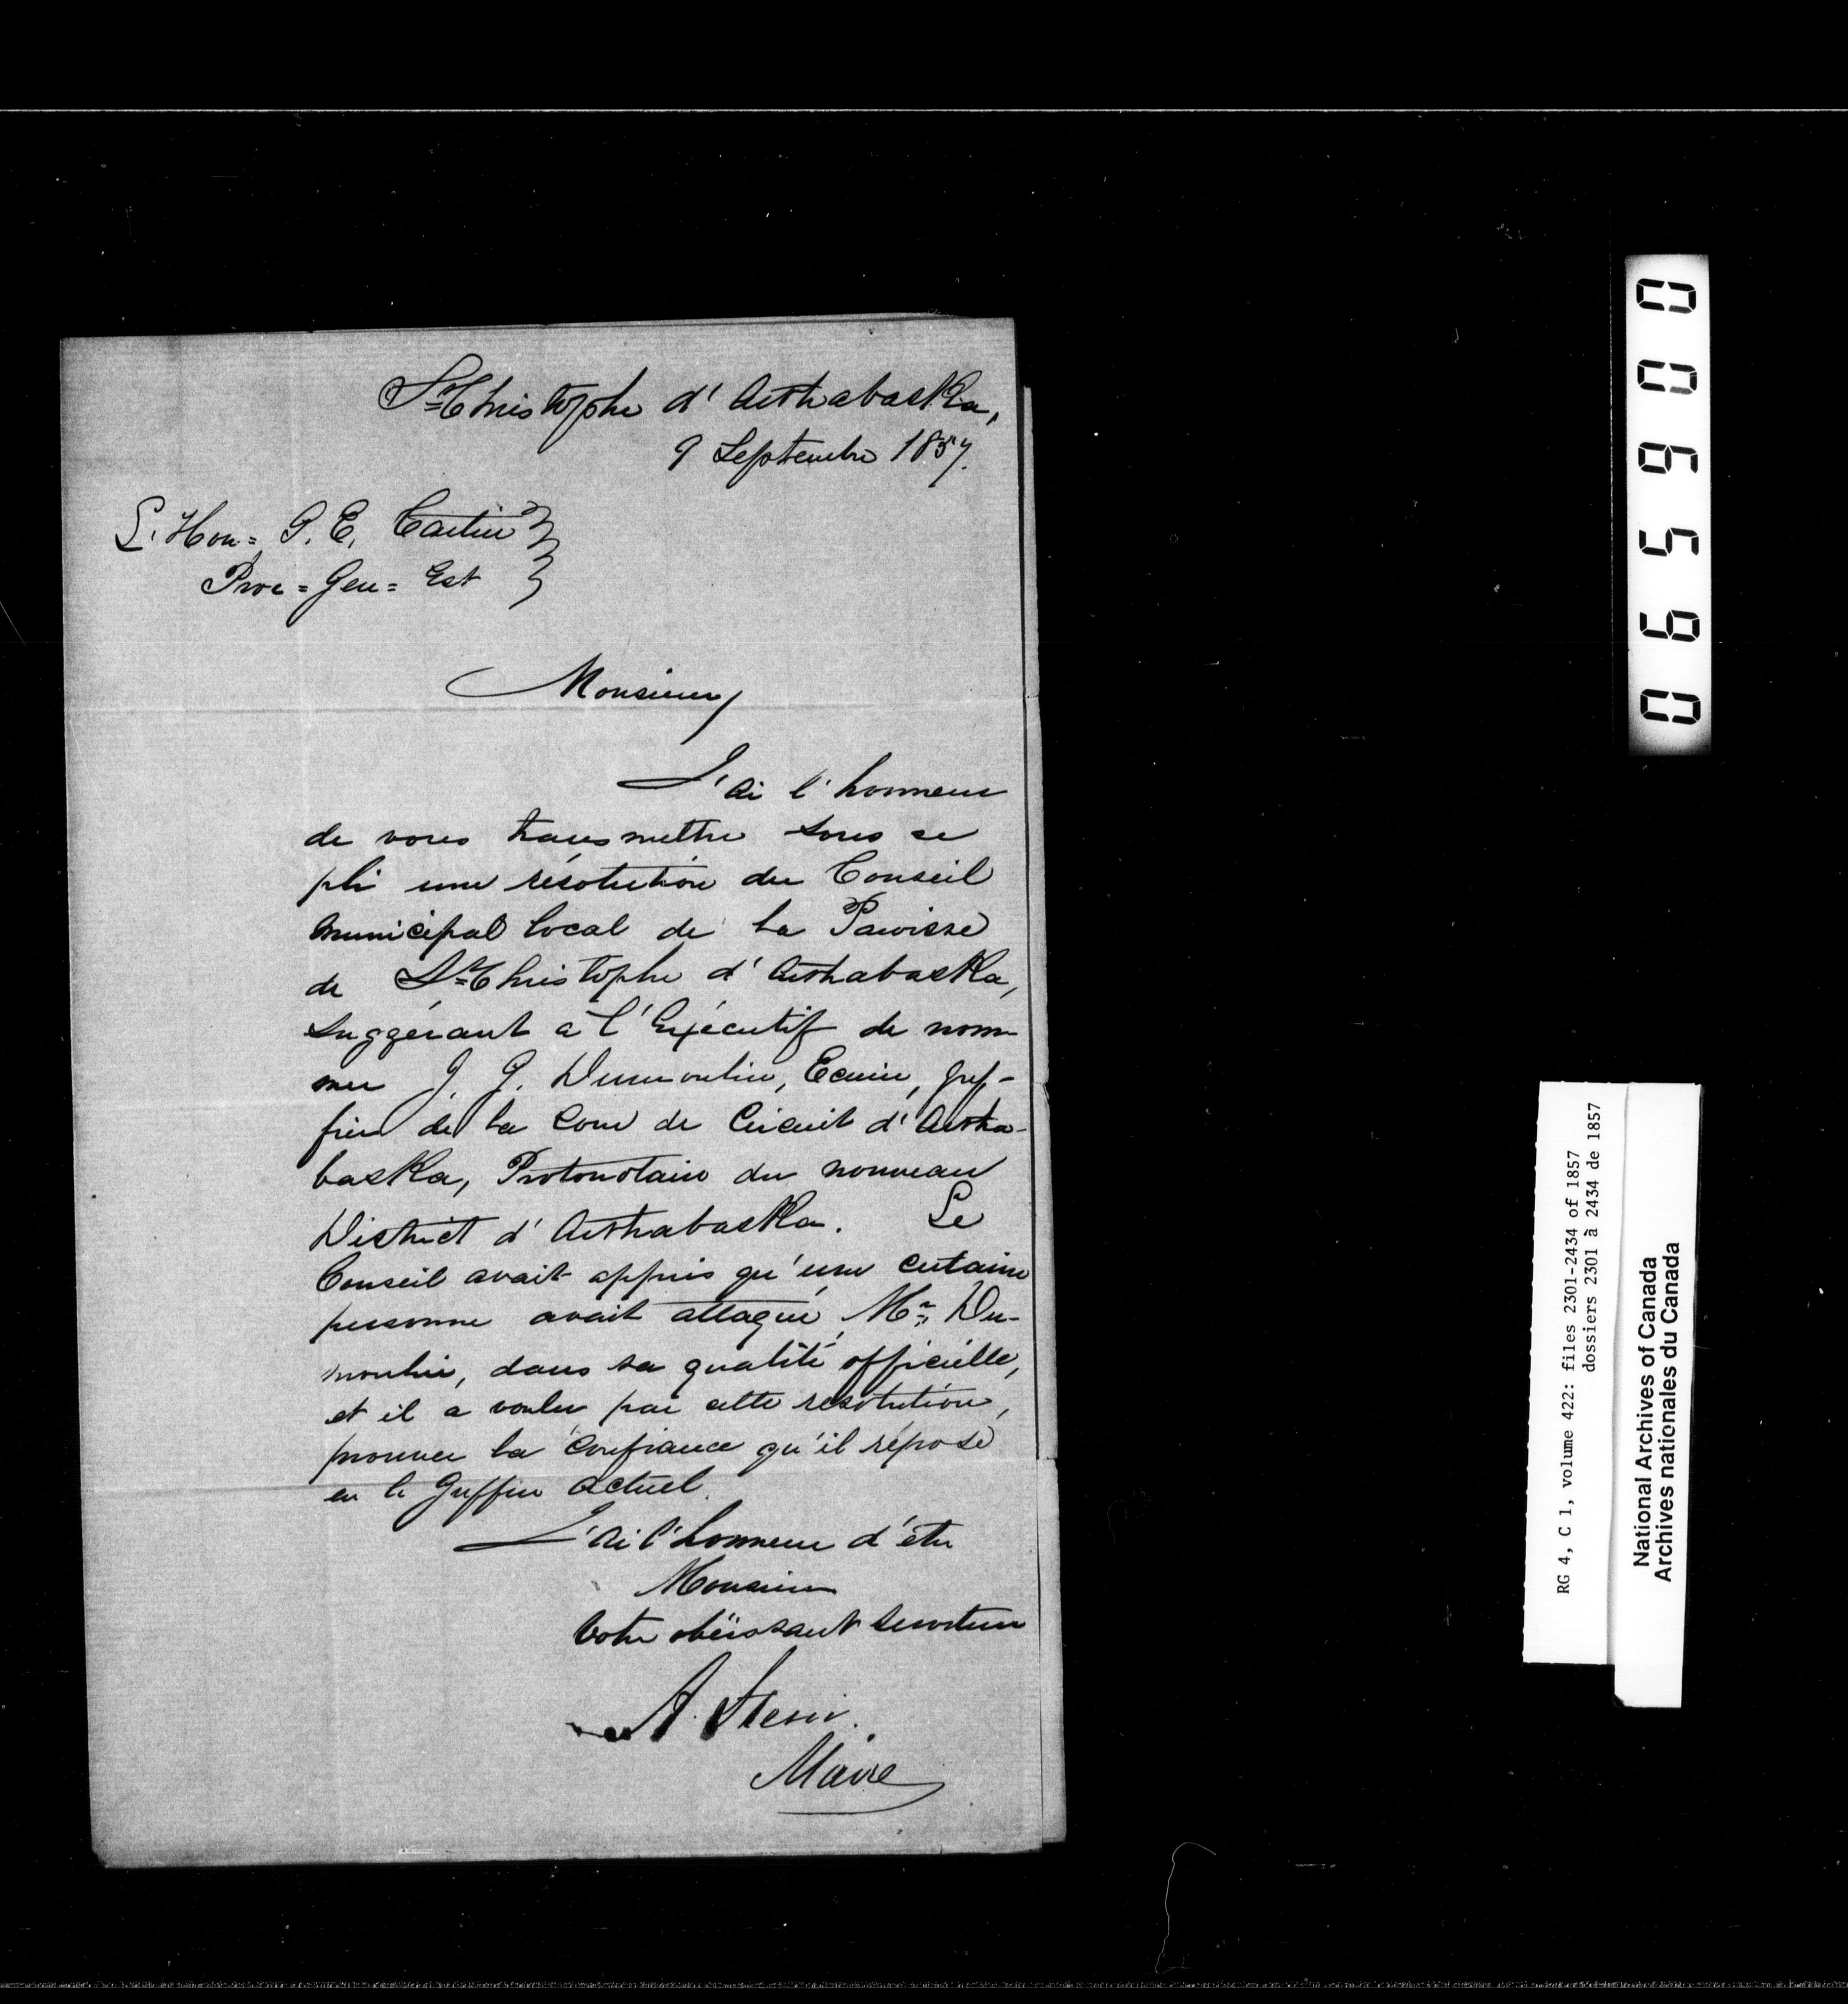 St Christophe d'Arthabaska,
9 Septembre 1857.
L'Hon= G. E. Cartier
Proc= Gen= Est
Monsieur,
J'ai l'honneur
de vous transmettre sous ce
pli une résolution du Conseil
Municipal local de la Paroisse
de St Christophe d'Arthabaska,
suggérant à l'Exécutif de nom-
mer J. G. Dumoulin, Ecuier, gref-
fier de la Cour de Circuit d'Artha-
baska, Protonotaire du nouveau
District d'Arthabaska. Le
Conseil avait appris qu'une certaine
personne avait attaqué, Mr Du-
moulin, dans sa qualité officielle,
et il a voulu par cette résolution,
prouver la confiance qu'il repose
en le Greffier actuel.
J'ai l'honneur d'être
Monsieur
Votre obéissant serviteur
A. Stein.
Maire
065900
RG 4, C 1, volume 422: files 2301-2434 of 1857
dossiers 2301 à 2434 de 1857
National Archives of Canada
Archives nationales du Canada